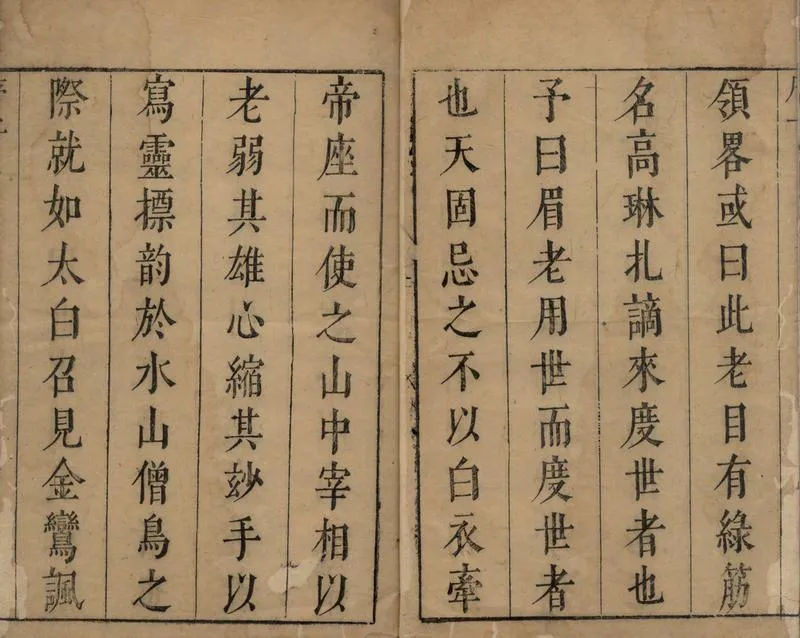 領畧或曰此老目有綠筋
名高琳札謫來度世者也
予曰眉老用世而度世者
也天固忌之不以白衣牽
帝座而使之山中宰相以
老弱其雄心縮其玅手以
寫靈摽韵於水山僧鳥之
際就如太白召見金鸞諷